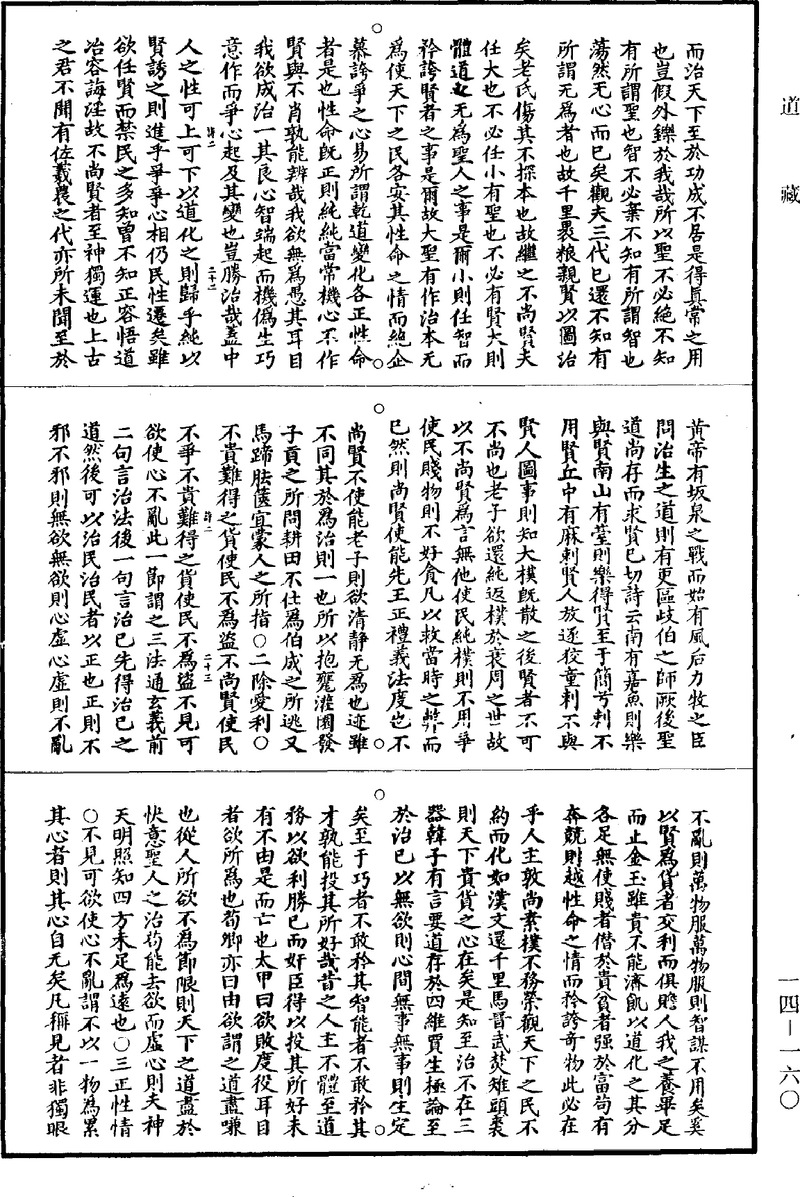 道藏
一四—一六〇
而治天下至於功成不居是得眞常之用
也豈假外鑠於我哉所以聖不必絶不知
有所謂聖也智不必棄不知有所謂智也
蕩然无心而已矣觀夫三代已還不知有
所謂无爲者也故千里褁粮親賢以圖治
矣老氏傷其不探本也故繼之不尚賢夫
任大也不必任小有聖也不必有賢大則
體道无爲聖人之事是爾小則任智而
矜誇賢者之事是爾故大聖有作治本无
爲使天下之民各安其性命之情而絶企
慕誇爭之心易所謂乾道變化各正性命
者是也性命旣正則純純當常機心不作
賢與不肖孰能辨哉我欲無爲愚其耳目
我欲成治一其良心智端起而機僞生巧
意作而爭心起及其變也豈勝治哉蓋中
二十二
人之性可上可下以道化之則歸乎純以
賢誘之則進乎爭爭心相仍民性遷矣雖
欲任賢而禁民之多知曾不知正容悟道
冶容誨淫故不尚賢者至神獨運也上古
之君不聞有佐羲農之代亦所未聞至於
黄帝有坂泉之戰而始有風后力牧之臣
問治生之道則有更區歧伯之師厥後聖
道尚存而求賢已切詩云南有嘉魚則樂
與賢南山有臺則樂得賢至于簡兮刺不
用賢丘中有麻刺賢人放逐狡童刺不與
賢人圖事則知大樸旣散之後賢者不可
不尚也老子欲還純返樸於衰周之世故
以不尚賢爲言無他使民純樸則不用爭
使民賤物則不好貪凡以救當時之弊而
已然則尚賢使能先王正禮義法度也不
尚賢不使能老子則欲清静无爲也迹雖
不同其於爲治則一也所以抱甕灌園發
子貢之所問耕田不仕爲伯成之所逃又
馬蹄胠篋宜蒙人之所指○二除愛利○
不貴難得之貨使民不爲盜不尚賢使民
二十三
不爭不貴難得之貨使民不爲盜不見可
欲使心不亂此一節謂之三法通玄義前
二句言治法後一句言治已先得治已之
道然後可以治民治民者以正也正則不
邪不邪則無欲無欲則心虛心虛則不亂
不亂則萬物服萬物服則智謀不用矣奚
以賢爲貨者交利而俱贍人我之養畢足
而止金玉雖貴不能濟飢以道化之其分
各足無使賤者僭於貴貧者强於富苟有
奔競則越性命之情而矜誇竒物此必在
乎人主敦尚素樸不務榮觀天下之民不
約而化如漢文還千里馬晉武焚雉頭裘
則天下貴貨之心在矣是知至治不在三
器韓子有言要道存於四維賈生極論至
於治已以無欲則心間無事無事則生定
矣至于巧者不敢矜其智能者不敢矜其
才孰能投其所好哉昔之人主不體至道
務以欲利勝已而奸臣得以投其所好未
有不由是而亡也太甲曰欲敗度役耳目
者欲所爲也荀卿亦曰由欲謂之道盡嗛
也從人所欲不爲節限則天下之道盡於
快意聖人之治苟能去欲而虛心則夫神
天明照知四方未足爲遠也○三正性情
○不見可欲使心不亂謂不以一物爲累
其心者則其心自无矣凡稱見者非獨眼